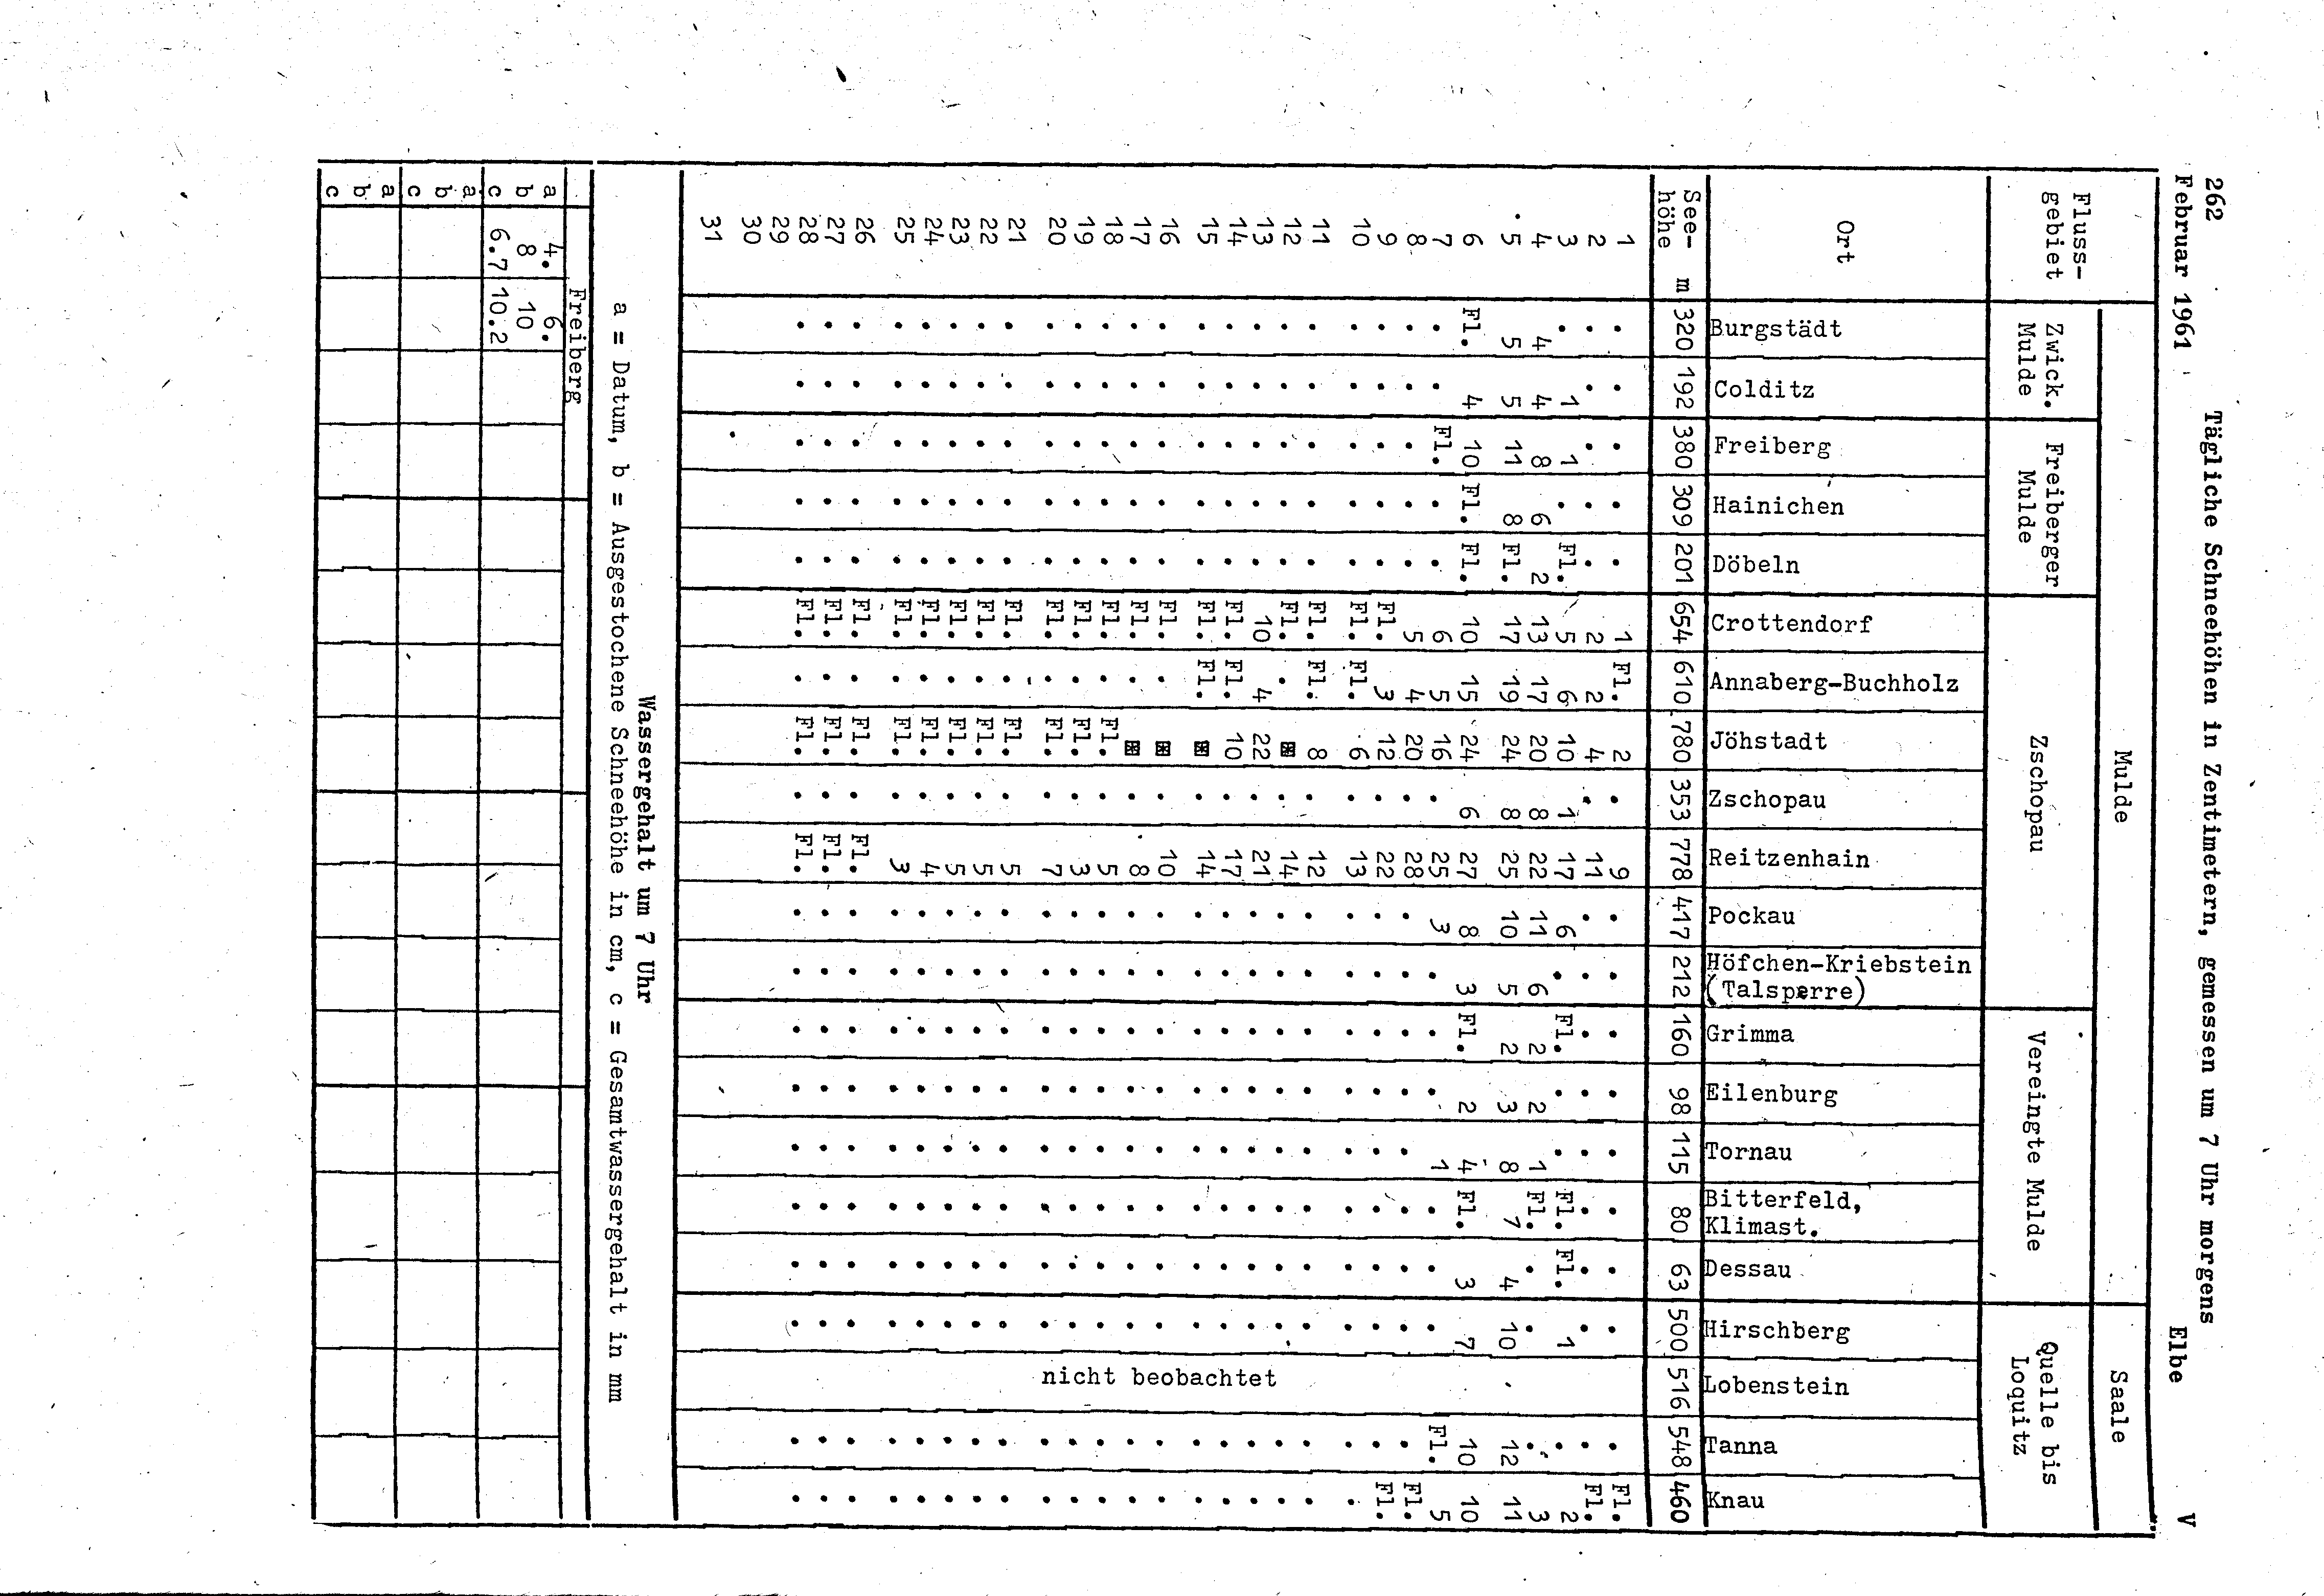 262
Februar 1961 Tägliche Schneehöhen in Zentimetern, gemessen um 7 Uhr morgens Elbe V
Mulde Saale
Fluss- Zwick. Freiberger Zschopau Vereingte Mulde Quelle bis
gebiet Mulde Mulde Loquitz
Ort Burgstädt Colditz Freiberg Hainichen Döbeln Crottendorf Annaberg-Buchholz Jöhstadt Zschopau Reitzenhain Pockau Höfchen-Kriebstein (Talsperre) Grimma Eilenburg Tornau Bitterfeld, Klimast. Dessau Hirschberg Lobenstein Tanna Knau
See-
höhe m 320 192 380 309 201 654 610 780 353 778 417 212 160 98 115 80 63 500 516 548 460
1 . . . . . 1 Fl. 2 . 9 . . . . . . . . . Fl.
2 . . . . . 2 2 4 . 11 . . . . . . . . . Fl.
3 . 1 1 . Fl. 5 6 10 1 17 6 . Fl. . . Fl. Fl. 1 . 2
4 4 4 8 6 2 13 17 20 8 22 11 6 2 2 1 Fl. . . . 3
5 5 5 11 8 Fl. 17 19 24 8 25 10 5 2 3 8 7 4 10 12 11
6 Fl. 4 10 Fl. Fl. 10 15 24 6 27 8 3 Fl. 2 4 Fl. 3 7 10 10
7 . . Fl. . . 6 5 16 . 25 3 . . . 1 . . . Fl. 5
8 . . . . . 5 4 20 . 28 . . . . . . . . . Fl.
9 . . . . . Fl. 3 12 . 22 . . . . . . . . . Fl.
10 . . . . . Fl. Fl. 6 . 13 . . . . . . . . . .
11 . . . . . Fl. Fl. 8 . 12 . . . . . . . . . .
12 . . . . . Fl. . ⊞ . 14 . . . . . . . . . .
13 . . . . . 10 4 22 . 21 . . . . . . . . . .
14 . . . . . Fl. Fl. 10 . 17 . . . . . . . . . .
15 . . . . . Fl. Fl. ⊞ . 14 . . . . . . . . . .
16 . . . . . Fl. . ⊞ . 10 . . . . . . . . . .
17 . . . . . Fl. . ⊞ . 8 . . . . . . . . . .
18 . . . . . Fl. . Fl. . 5 . . . . . . . . . .
19 . . . . . Fl. . Fl. . 3 . . . . . . . . . .
20 . . . . . Fl. . Fl. . 7 . . . . . . . . nicht beobachtet . .
21 . . . . . Fl. . Fl. . 5 . . . . . . . . . .
22 . . . . . Fl. . Fl. . 5 . . . . . . . . . .
23 . . . . . Fl. . Fl. . 5 . . . . . . . . . .
24 . . . . . Fl. . Fl. . 4 . . . . . . . . . .
25 . . . . . Fl. . Fl. . 3 . . . . . . . . . .
26 . . . . . Fl. . Fl. . Fl. . . . . . . . . . .
27 . . . . . Fl. . Fl. . Fl. . . . . . . . . . .
28 . . . . . Fl. . Fl. . Fl. . . . . . . . . . .
29
30
31
Wassergehalt um 7 Uhr
a = Datum, b = Ausgestochene Schneehöhe in cm, c = Gesamtwassergehalt in mm
Freiberg
a 4. 6.
b 8 10
c 6.7 10.2
a
b
c
a
b
c